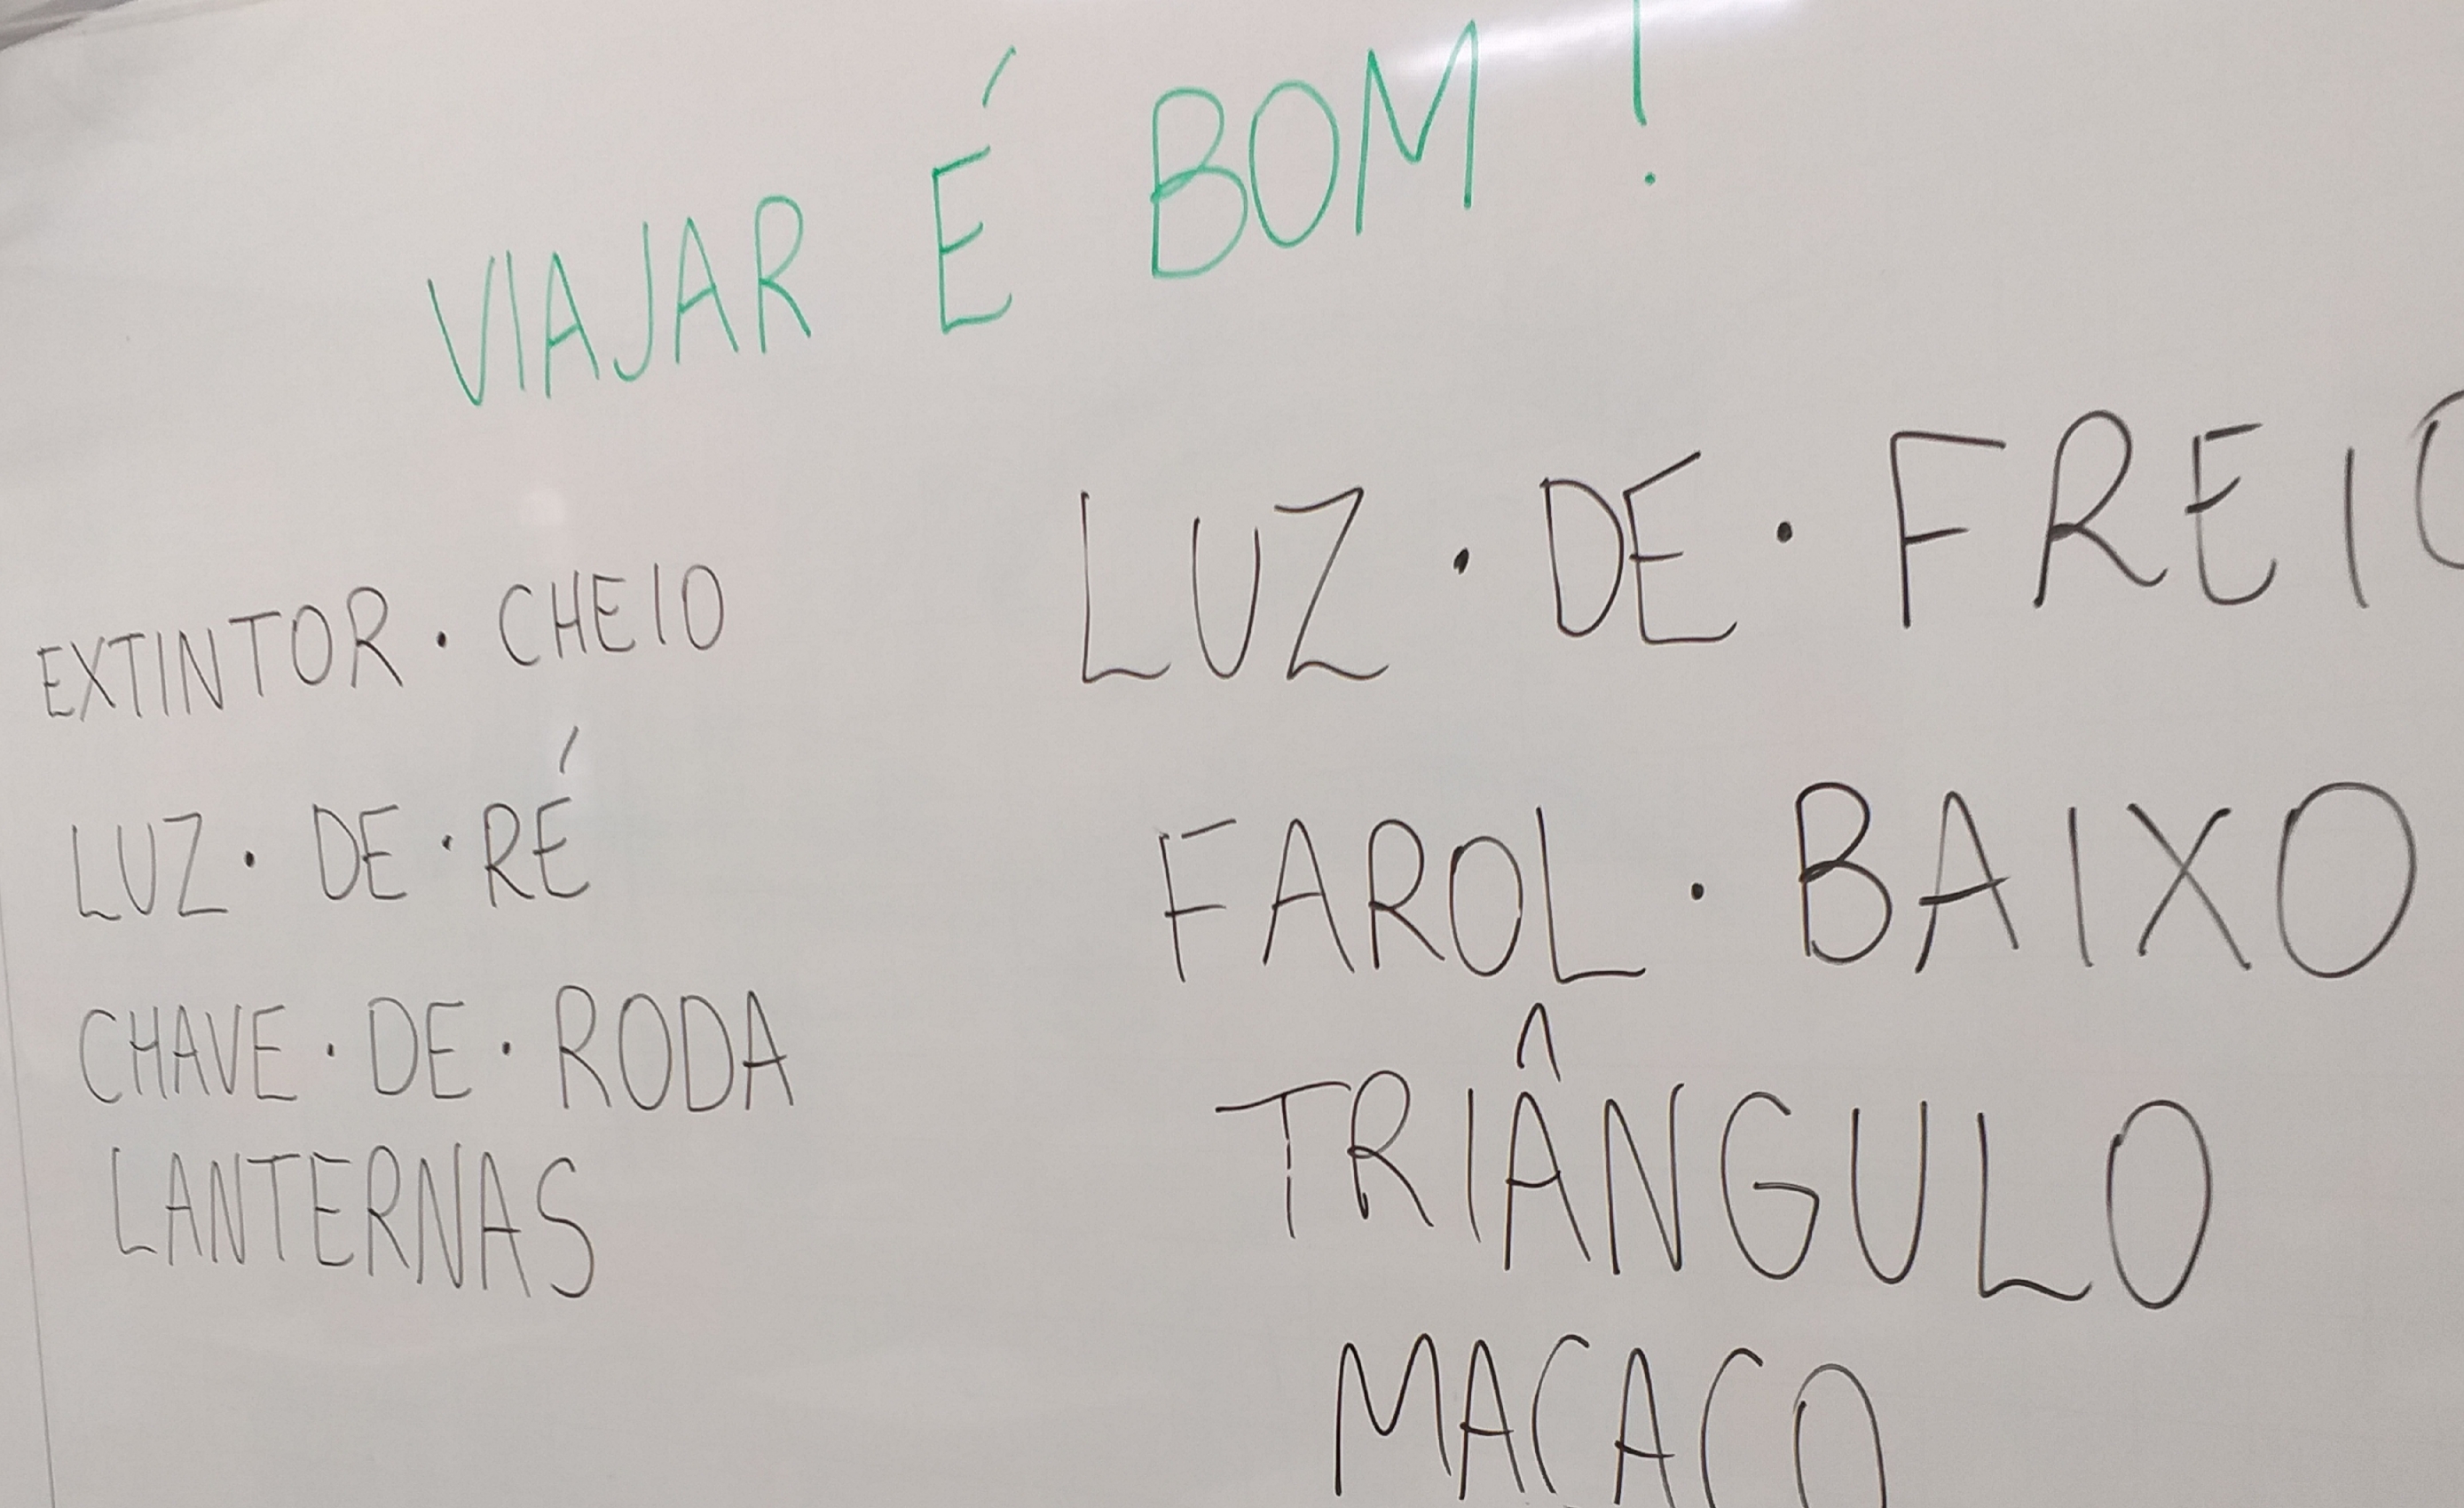 VIAJAR É BOM !
EXTINTOR · CHEIO
LUZ · DE · RÉ
CHAVE · DE · RODA
LANTERNAS
LUZ · DE · FREIO
FAROL · BAIXO
TRIÂNGULO
MACACO